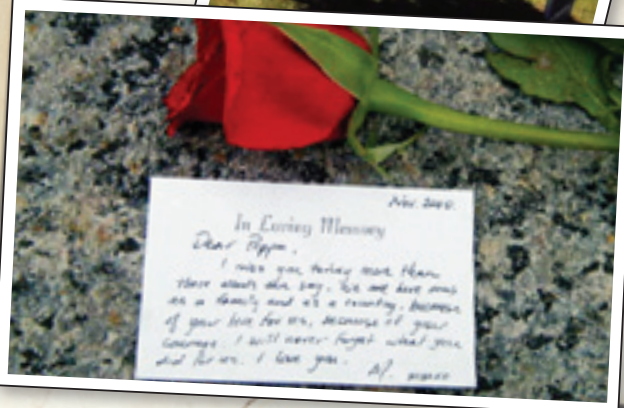 Nov. 2000.
In Loving Memory
Dear Poppa,
I miss you today more than
these words can say. We are here now
as a family and as a country, because
of your love for us, because of your
courage. I will never forget what you
did for us. I love you.